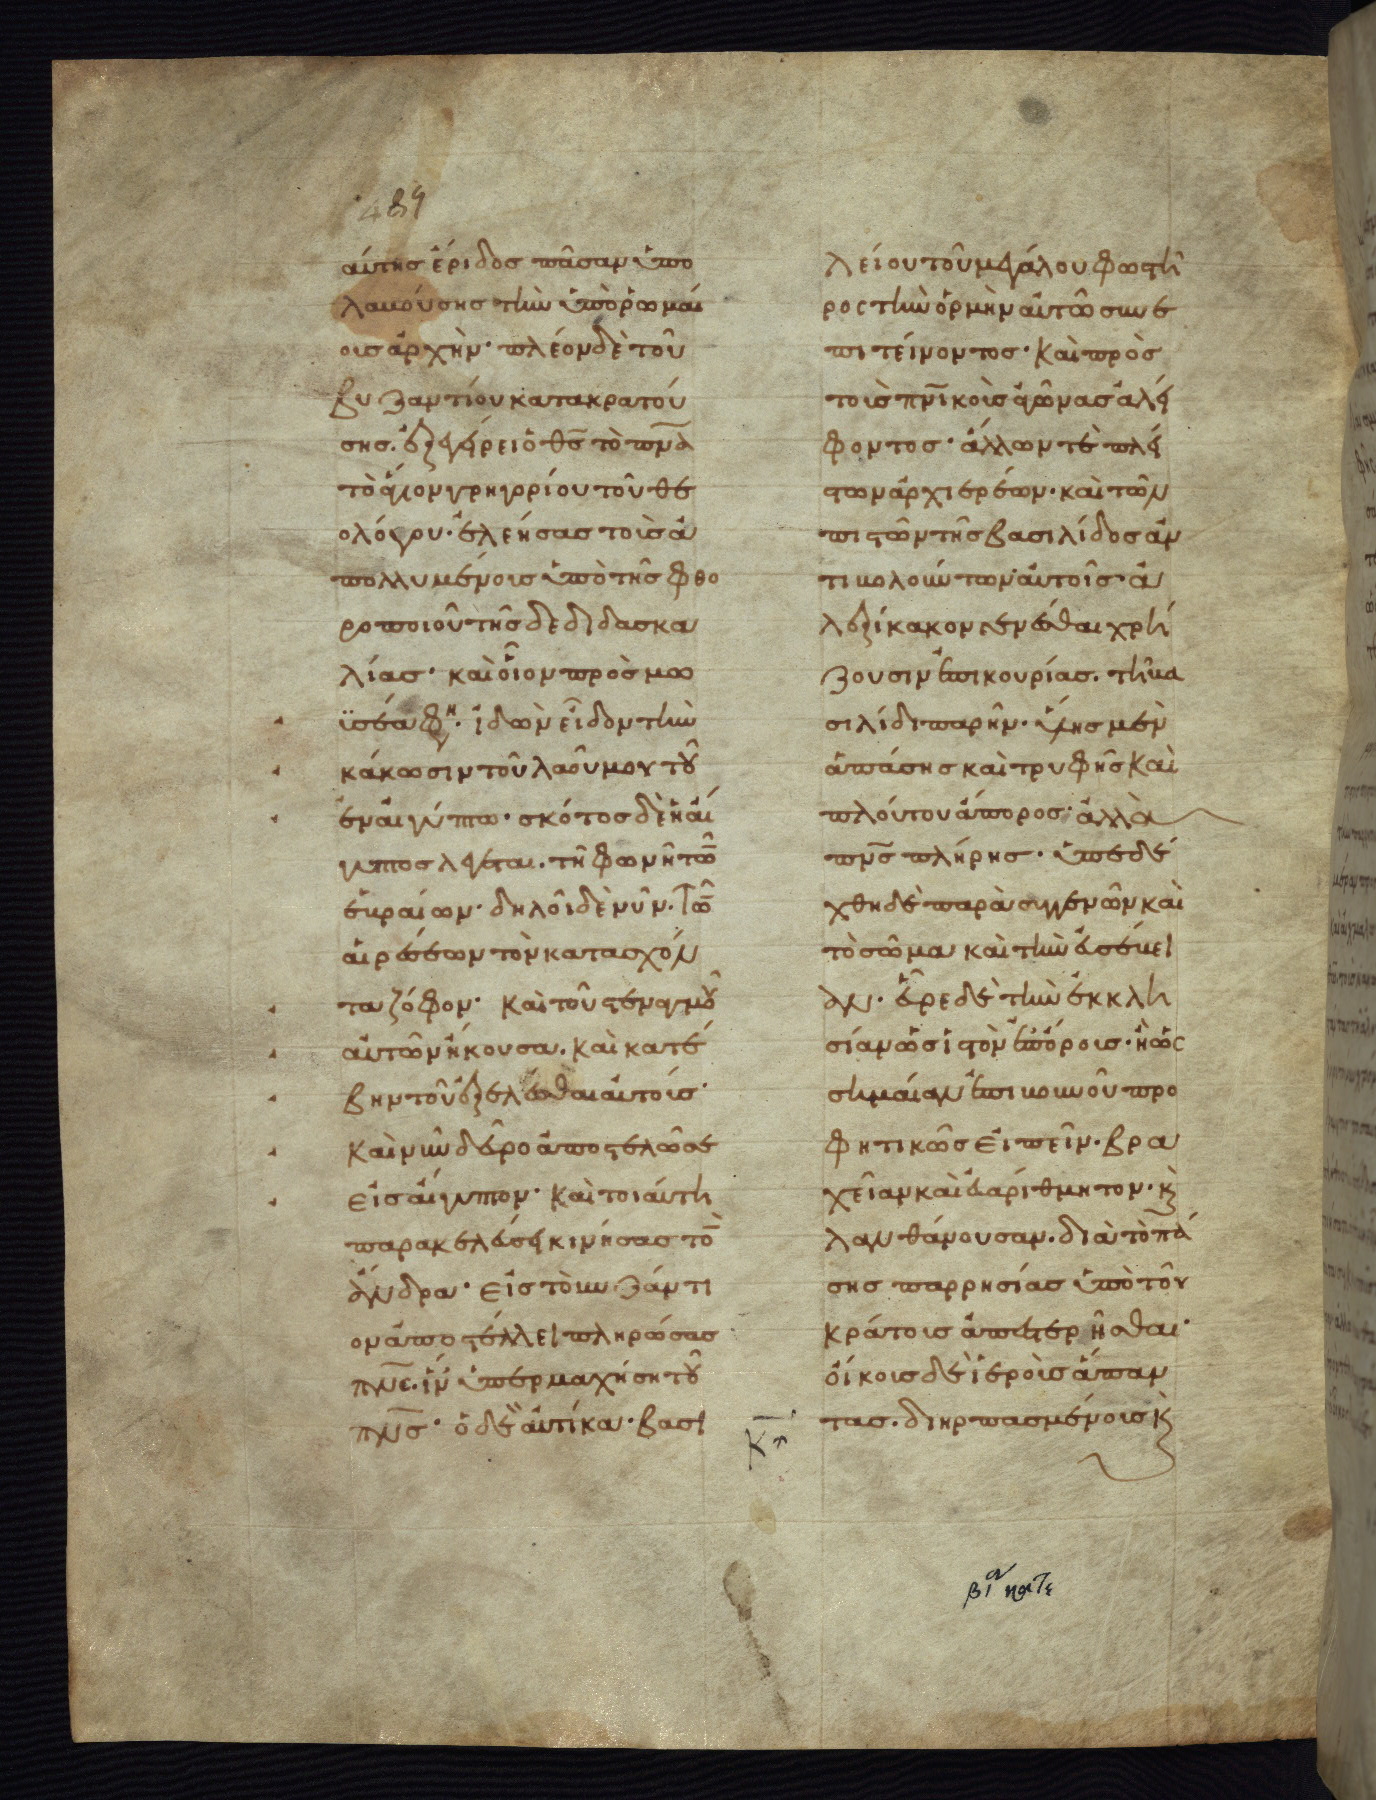 489
αὐτῆς ἔριδος πᾶσαν ὑπο
λαβούσης τὴν ὑπὸ ῥωμαί
οις ἀρχήν· πλέον δὲ τοῦ
βυζαντίου κατακρατού
σης. ἐξεγείρει ὁ θς τὸ πνα
τὸ ἅγιον γρηγορίου τοῦ θε
ολόγου· ἐλεήσας τοῖς ἀ
πολλυμένοις ὑπὸ τῆς φθο
ροποιοῦ τῆσδε διδασκα
λίας· καὶ οἷον πρὸς μω
ϋσέα φη· ἰδὼν εἶδον τὴν
κάκωσιν τοῦ λαοῦ μου τοῦ
ἐν αἰγύπτω· σκότος δὲ ἡ αἴ
γυπτος λέγεται. τῆ φωνῆ τῶν
ἑβραίων· δηλοῖ δὲ νῦν. τῶν
αἱρέσεων τὸν κατασχόν
τα ζόφον· καὶ τοῦ στεναγμοῦ
αὐτῶν ἤκουσα. καὶ κατέ
βην τοῦ ἐξελέσθαι αὐτούς·
καὶ νῦν δεῦρο ἀποστελῶ σε
εἰς αἴγυπτον· καὶ τοιαύτη
παρακελεύσει κινήσας τὸν
ἄνδρα· εἰς τὸ βυζάντι
ον ἀποστέλλει πληρώσας
πνς. ἵν ὑπερμαχήση τοῦ
πνς· ὁ δὲ αὐτίκα· βασι
λείου τοῦ μεγάλου φωστῆ
ρος τὴν ὁρμὴν αὐτῶ συνε
πιτείνοντος· καὶ πρὸς
τοὺς πνικοὺς ἀγῶνας ἀλεί
φοντος· ἄλλων τὲ πλεί
στων ἀρχιερέων· καὶ τῶν
πιστῶν τῆς βασιλίδος ἀν
τιβολούντων αὐτοῖς· ἀ
λεξίκακον γενέσθαι χρή
ζουσιν ἐπικουρίας. τῆ βα
σιλίδι παρῆν· ὕλης μὲν
ἁπάσης καὶ τρυφῆς καὶ
πλούτου ἄπορος· ἀλλὰ
πνς πλήρης· ὑπεδέ
χθη δὲ παρὰ συγγενῶν καὶ
τὸ σῶμα καὶ τὴν εὐσέβει
αν· εὗρε δὲ τὴν ἐκκλη
σίαν ὡσὶ τὸν ἐπόροις· ἢ ὡς
σημαίαν ἐπὶ βουνοῦ προ
φητικῶς εἰπεῖν· βρα
χεῖαν καὶ εὐαρίθμητον· κ
λανθάνουσαν. διὰ τὸ πά
σης παρρησίας ὑπὸ τοῦ
κράτους ἀπεστερῆσθαι·
οἴκους δὲ ἱεροὺς ἅπαν
τας. διηρπασμένους κ